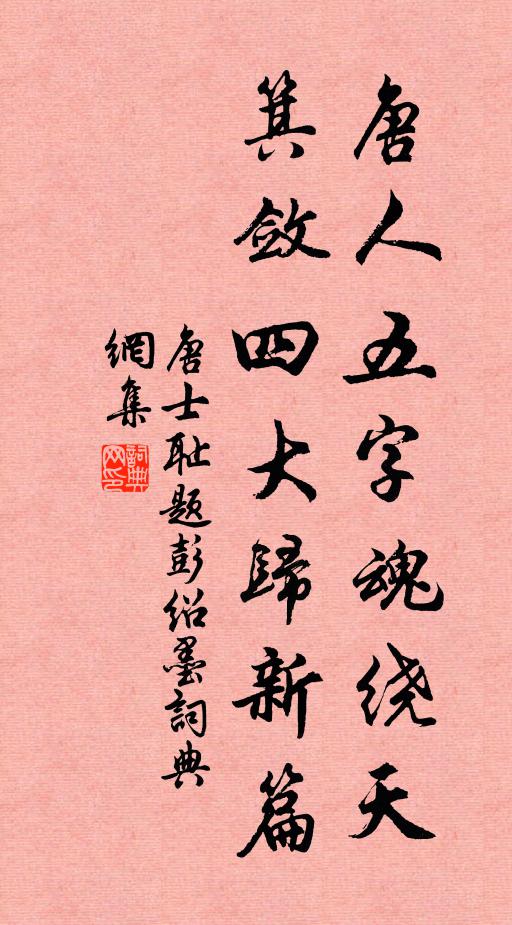 唐人五字魂绕天
箕敛四大歸新篇
唐士耻题彭绍墨詞典
網集
詞典
网印